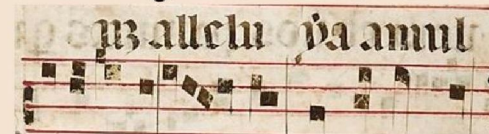 allelu ya amul